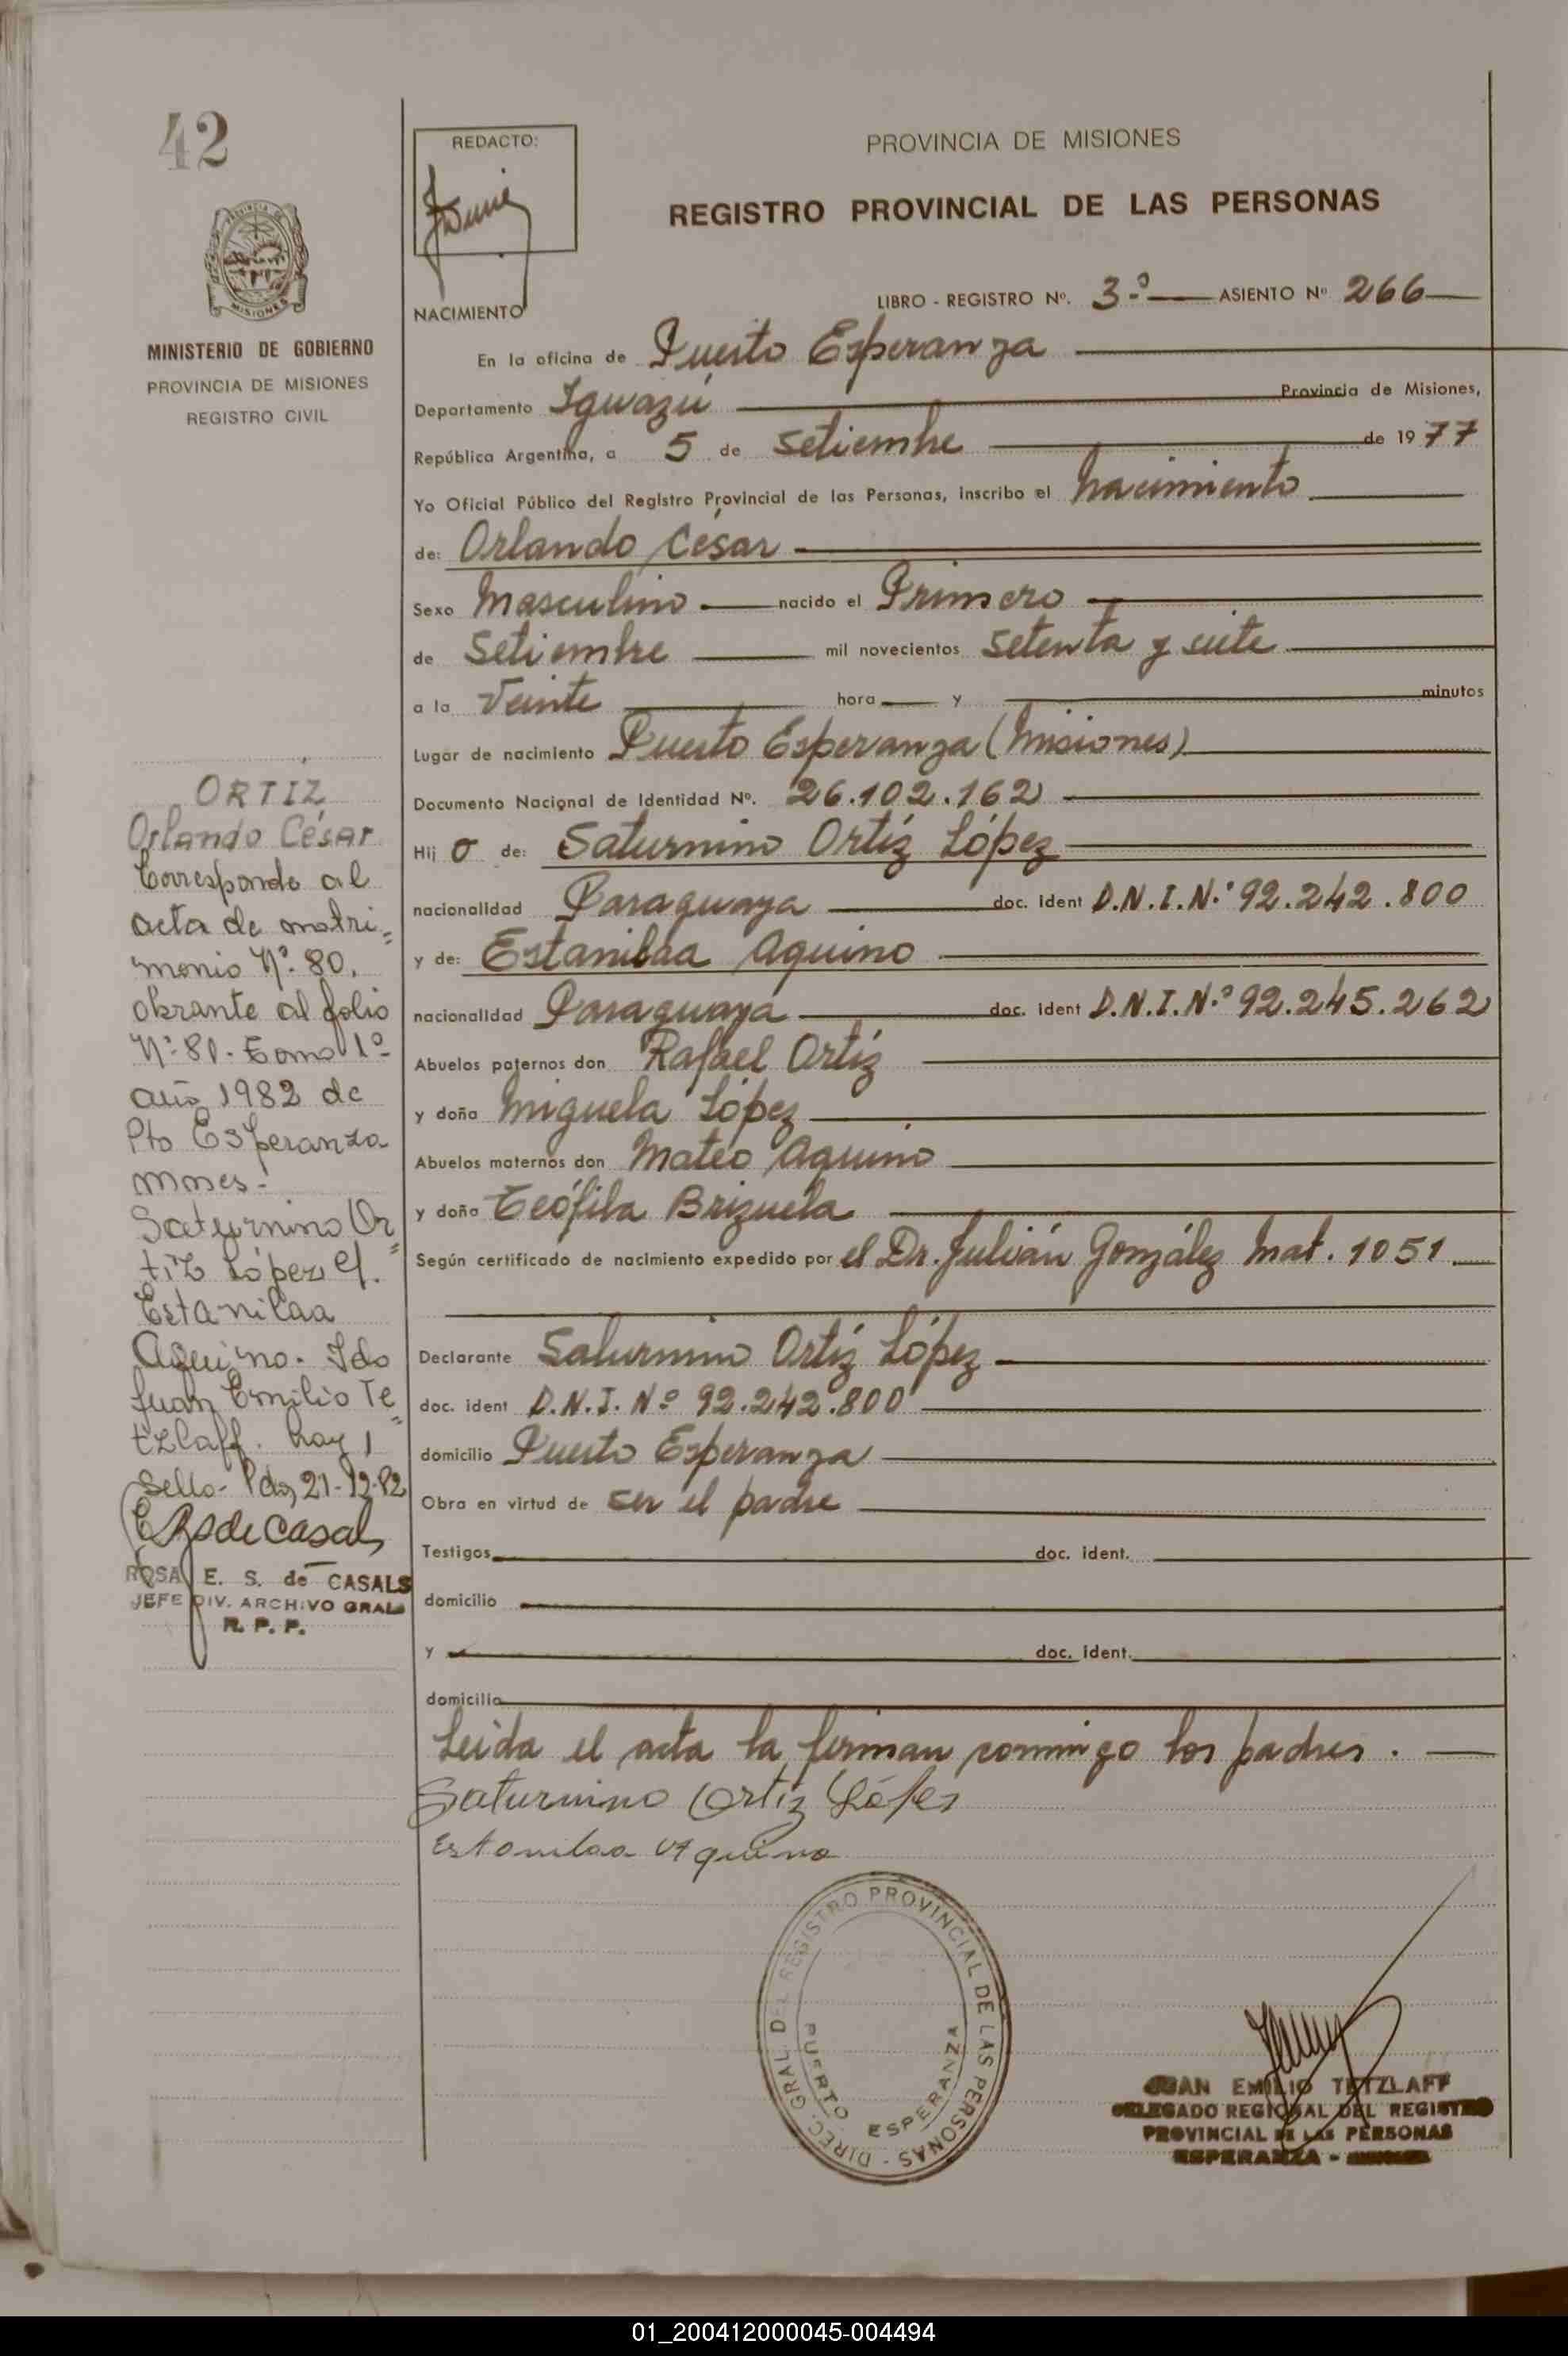 42
MINISTERIO DE GOBIERNO
PROVINCIA DE MISIONES
REGISTRO CIVIL
ORTIZ
Orlando César
Corresponde al
acta de matri=
monio Nº 80.
obrante al folio
Nº 80. Tomo 1º
año 1982 de
Pto Esperanza
Mnes.
Saturnino Or=
tiz López y
Estanilaa
Aquino. Fdo
Juan Emilio Te=
tzlaff. hay 1
sello. Pdas 21-12-82
ROSA E. S. de CASALS
JEFE DIV. ARCHIVO GRAL
R. P. P.
REDACTO:
PROVINCIA DE MISIONES
REGISTRO PROVINCIAL DE LAS PERSONAS
NACIMIENTO
LIBRO - REGISTRO Nº. 3º ASIENTO Nº 266
En la oficina de Puerto Esperanza
Departamento Iguazú Provincia de Misiones,
República Argentina, a 5 de Setiembre de 1977
Yo Oficial Público del Registro Provincial de las Personas, inscribo el Nacimiento
de: Orlando César
Sexo Masculino nacido el Primero
de Setiembre mil novecientos setenta y siete
a la Veinte hora y minutos
Lugar de nacimiento Puerto Esperanza (Misiones)
Documento Nacional de Identidad Nº. 26.102.162
Hij o de: Saturnino Ortíz López
nacionalidad Paraguaya doc. ident D.N.I.Nº 92.242.800
y de: Estanilaa Aquino
nacionalidad Paraguaya doc. ident D.N.I.Nº 92.245.262
Abuelos paternos don Rafael Ortíz
y doña Miguela López
Abuelos maternos don Mateo Aquino
y doña Teófila Brizuela
Según certificado de nacimiento expedido por el Dr. Julián González Mat. 1051
Declarante Saturnino Ortíz López
doc. ident D.N.I. Nº 92.242.800
domicilio Puerto Esperanza
Obra en virtud de ser el padre
Testigos doc. ident.
domicilio
y doc. ident.
domicilio
Leída el acta la firman conmigo los padres.
Saturnino Ortiz López
Estanilaa Aquino
DIREC. GRAL. DEL REGISTRO PROVINCIAL DE LAS PERSONAS -
PUERTO ESPERANZA
JUAN EMILIO TETZLAFF
DELEGADO REGIONAL DEL REGISTRO
PROVINCIAL DE LAS PERSONAS
ESPERANZA -
01_200412000045-004494